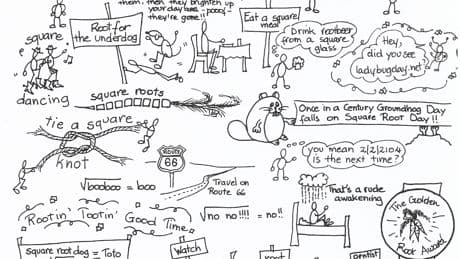 them, then they brighten up
your day and - poof -
they're gone!!
square
dancing
Root for
the underdog
Eat a square
meal
Drink rootbeer
from a square
glass
Hey,
did you see
ladybugday.net
square roots
Once in a Century Groundhog Day
falls on Square Root Day!!
tie a square
knot
ROUTE
66
you mean 2/2/2104
is the next time?
√booboo = boo
Travel on
Route 66
That's a rude
awakening
The Golden
Root Award
Rootin' Tootin' Good Time
√no no!!!! = no!!
square root dog = Toto
Watch
Root
dentist